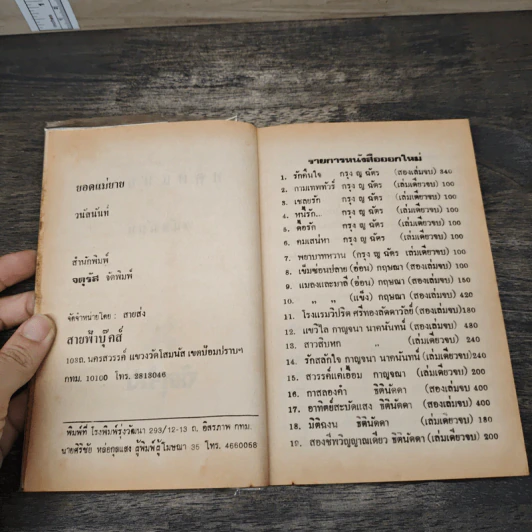 ยอดแม่ยาย
วนัสนันท์
สำนักพิมพ์
จตุรัส จัดพิมพ์
จัดจำหน่ายโดย : สายส่ง
สายฟ้าบุ๊คส์
108ถ.นครสวรรค์ แขวงวัดโสมนัส เขตป้อมปราบฯ
กทม. 10100 โทร. 2813046
พิมพ์ที่ โรงพิมพ์รุ่งวัฒนา 293/12-13 ถ. อิสรภาพ กทม.
นายศิริชัย หล่อกุลแสง ผู้พิมพ์ผู้โฆษณา 35 โทร. 4660058
รายการหนังสือออกใหม่
1. รักคืนใจ กรุง ญ ฉัตร (สองเล่มจบ) 340
2. กามเทพทัวร์ กรุง ญ ฉัตร (เล่มเดียวจบ) 100
3. เชลยรัก กรุง ญ ฉัตร (เล่มเดียวจบ) 100
4. หนี้รัก.. กรุง ญ ฉัตร (เล่มเดียวจบ) 100
5. ดื้อรัก กรุง ญ ฉัตร (เล่มเดียวจบ) 100
6. คมเสน่หา กรุง ญ ฉัตร (เล่มเดียวจบ) 100
7. พยาบาทหวาน (กรุง ญ ฉัตร (เล่มเดียวจบ) 100
8. เข็มซ่อนปลาย (อ่อน) กฤษณา (สองเล่มจบ) 180
9. แมองและมาลี (อ่อน) กฤษณา (เล่มเดียวจบ) 100
10. " " (แข็ง) กฤษณา (สองเล่มจบ) 420
11. โรงแรมวิปริต ศรีทองลัดดาวัลย์ (เล่มเดียวจบ) 150
12. แขวิไล กาญจนา นาคนันทน์ (สองเล่มจบ) 480
13. สาวสิบหก " (เล่มเดียวจบ) 240
14. รักสลักใจ กาญจนา นาคนันทน์ (เล่มเดียวจบ)240
15. สวรรค์แค่เอื้อม กาญจณา (เล่มเดียวจบ) 200
16. กาสลองคำ ธิตินัดดา (สองเล่มจบ) 400
17. อาทิตย์สะบัดแสง ธิตินัดดา (สองเล่มจบ) 400
18. มิติฉงน ธิตินัดดา (เล่มเดียวจบ) 180
19. สองชีพวิญญาณเดียว ธิตินัดดา (เล่มเดียวจบ) 200